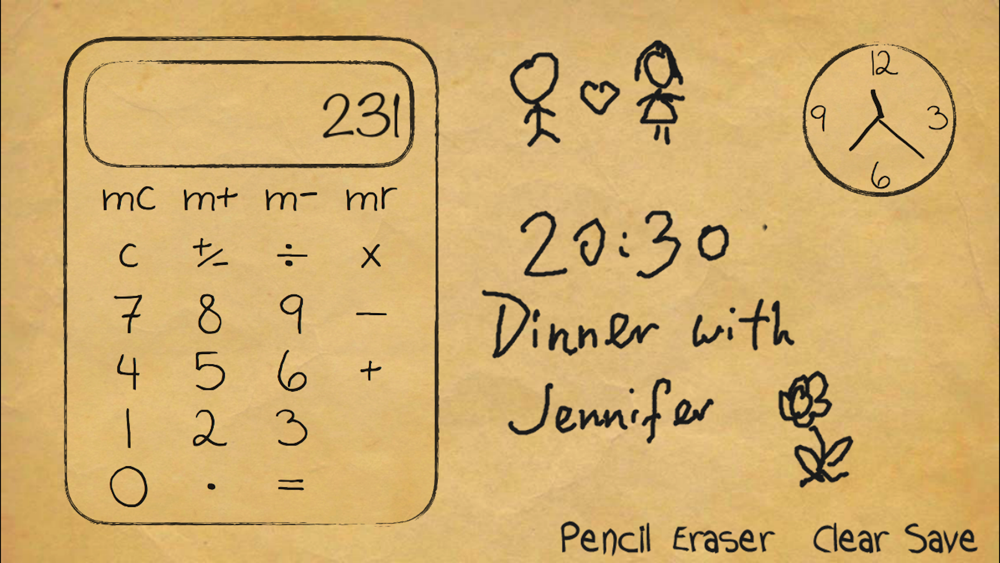 231
mc m+ m- mr
c +/- ÷ x
7 8 9 −
4 5 6 +
1 2 3
0 . =
12
9 3
6
20:30
Dinner with
Jennifer
Pencil Eraser Clear Save